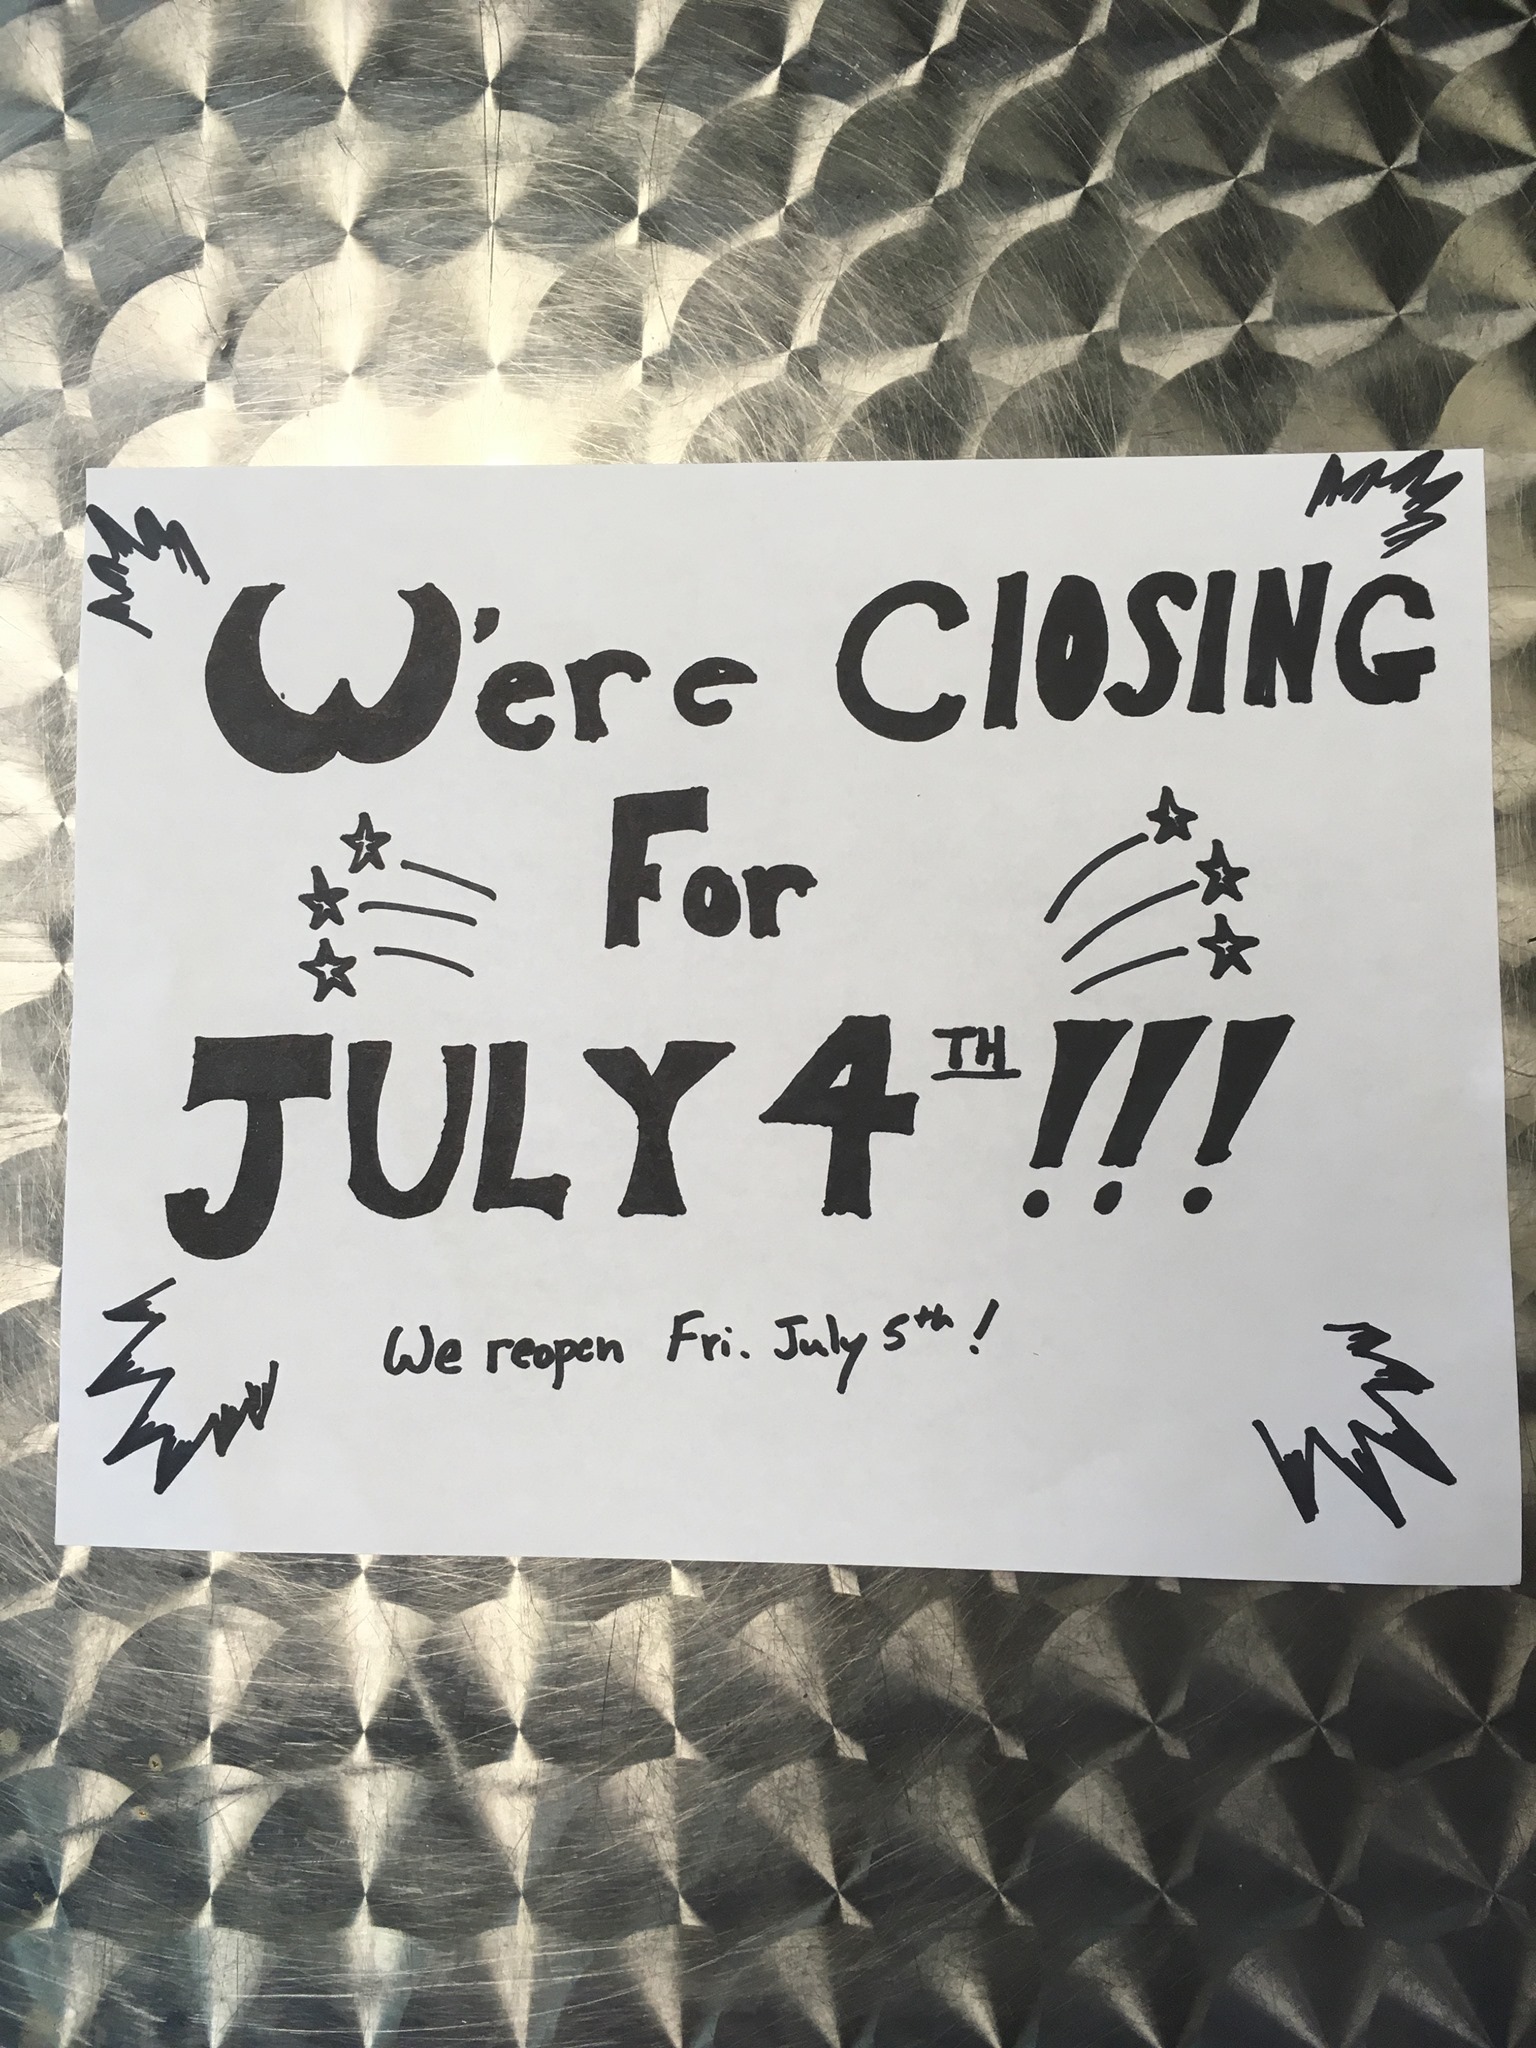 We're ClOSING
For
JULY 4TH!!!
We reopen Fri. July 5th!